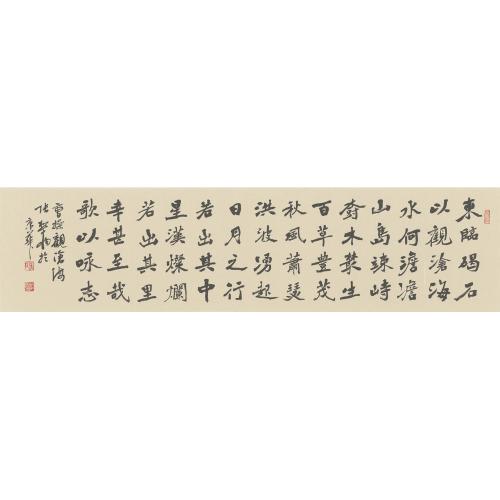 東臨碣石
以觀滄海
水何澹澹
山島竦峙
樹木叢生
百草豊茂
秋風蕭瑟
洪波湧起
日月之行
若出其中
星漢燦爛
若出其里
幸甚至哉
歌以咏志
曹操觀滄海
於
京華